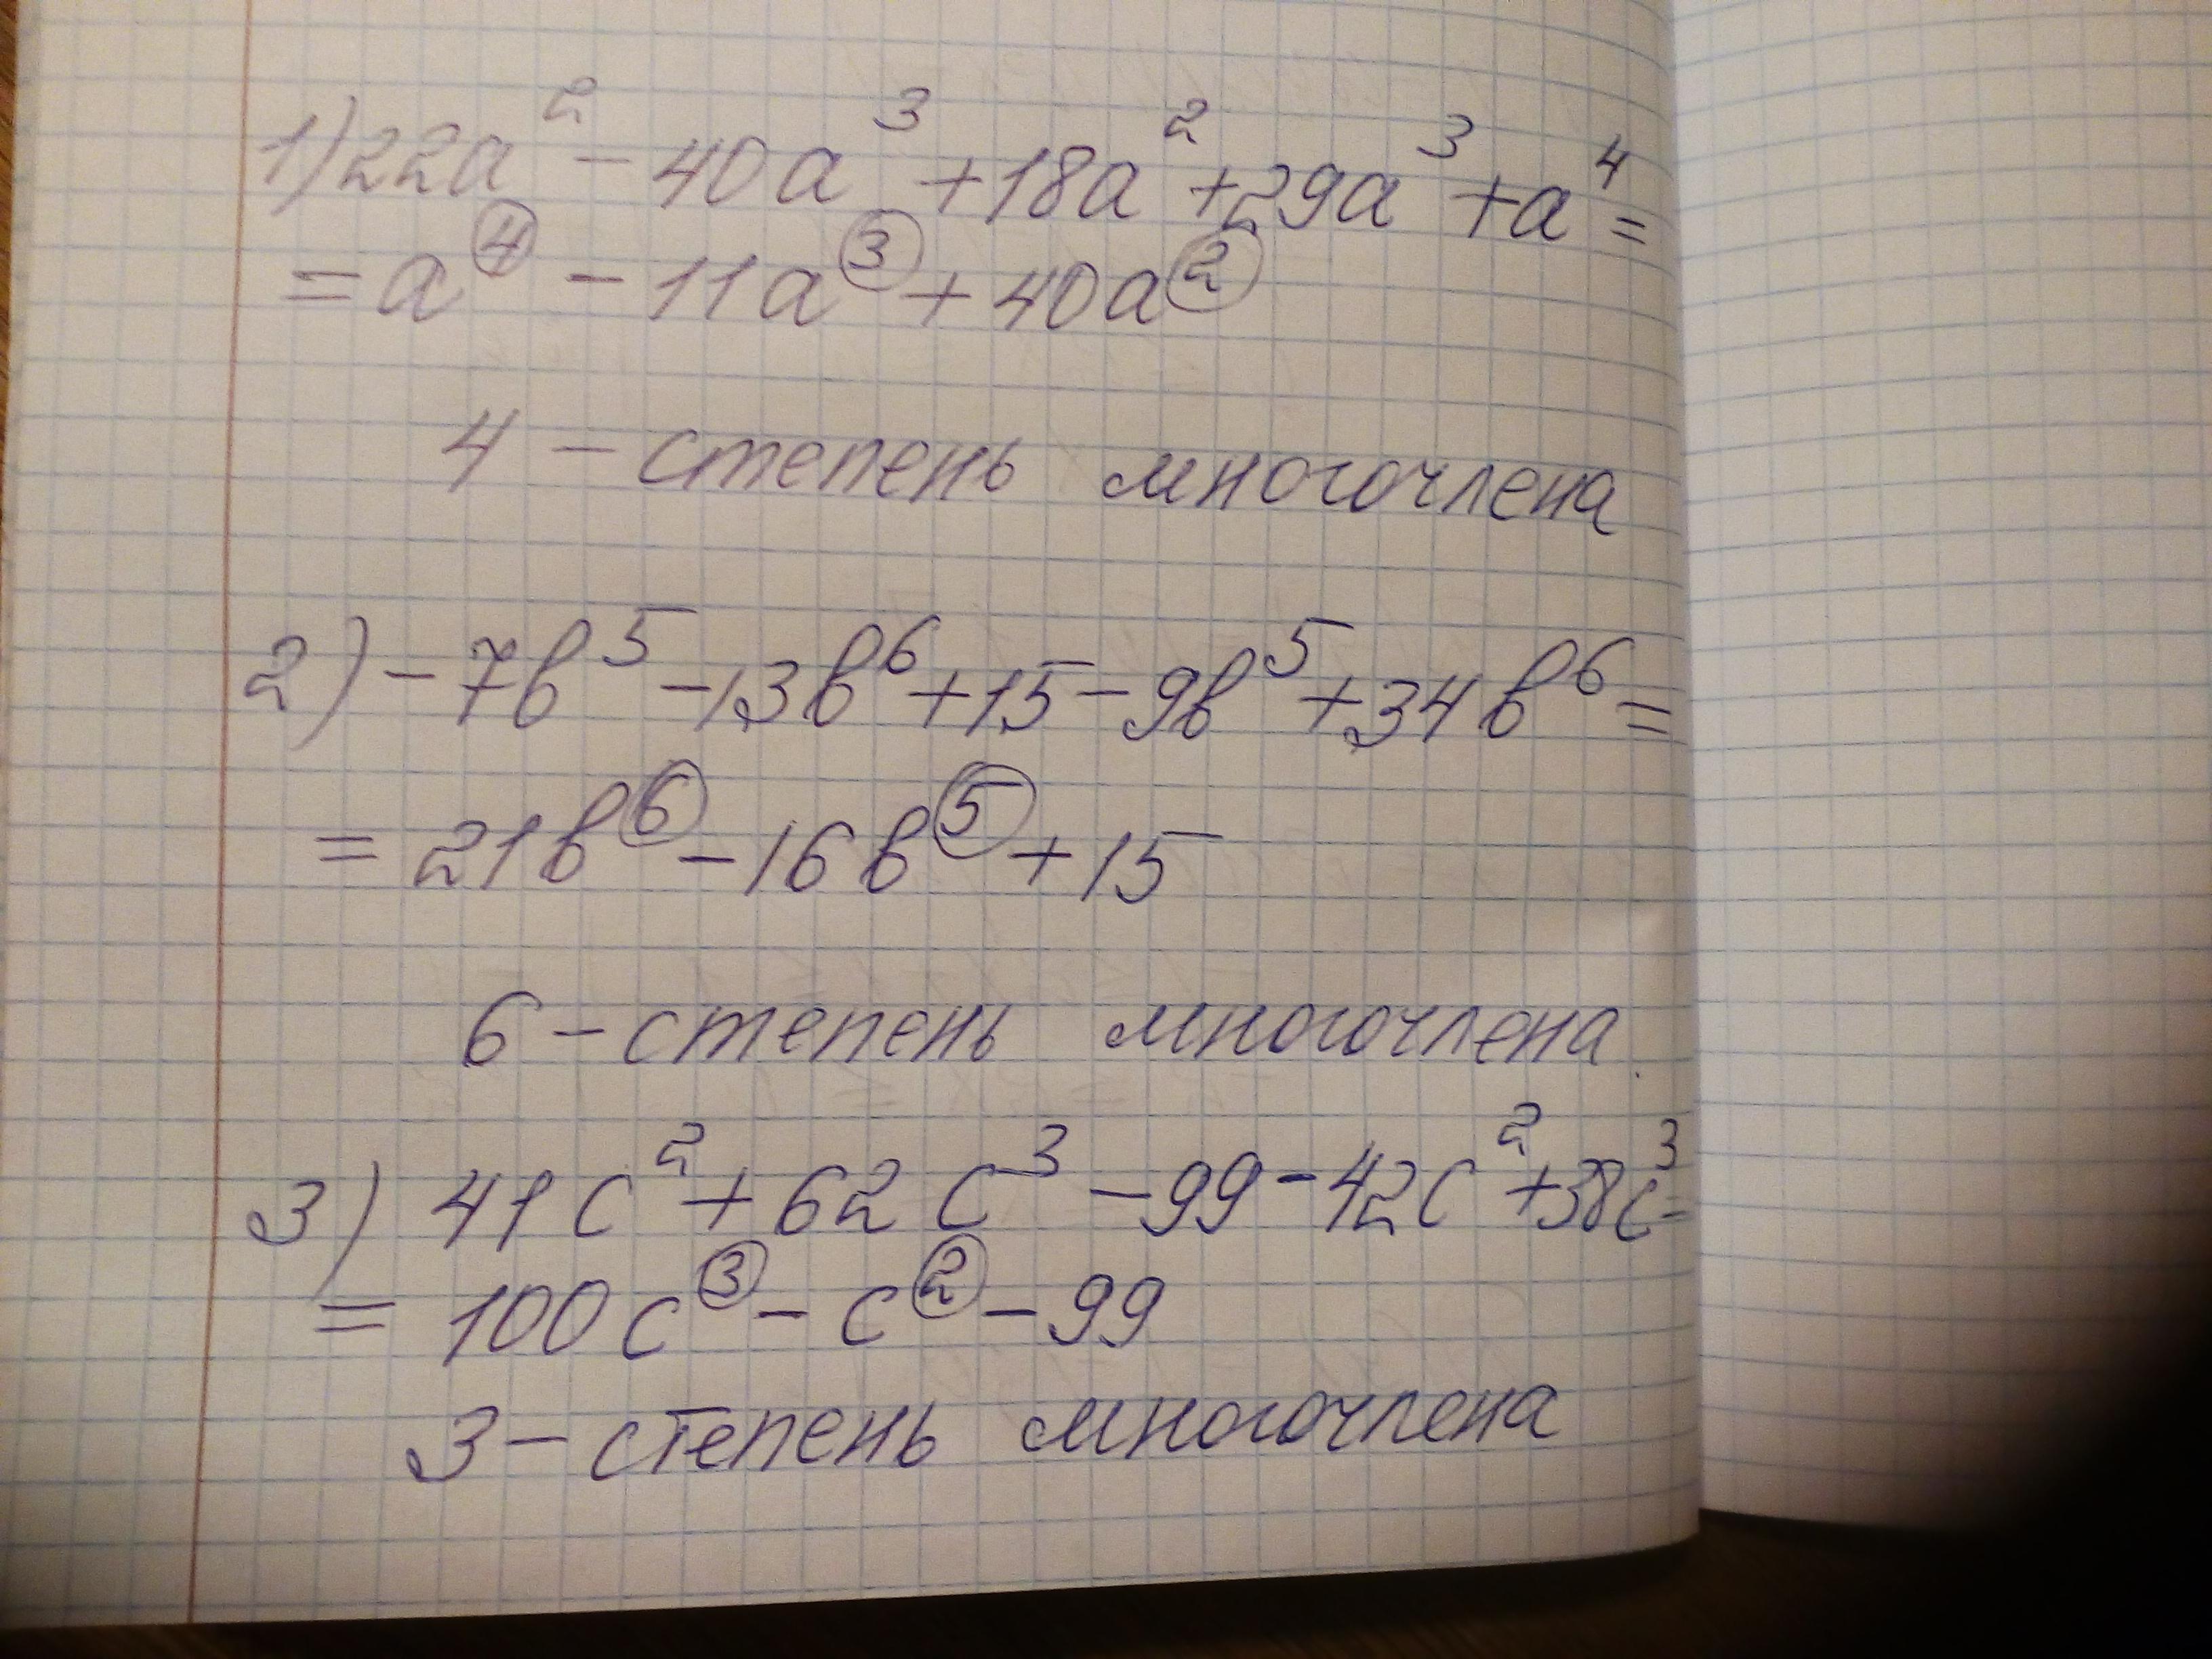 1) 22a² - 40a³ + 18a² + 29a³ + a⁴ =
= a⁴ - 11a³ + 40a²
4 - степень многочлена
2) - 7b⁵ - 13b⁶ + 15 - 9b⁵ + 34b⁶ =
= 21b⁶ - 16b⁵ + 15
6 - степень многочлена
3) 41c² + 62c³ - 99 - 42c² + 38c³ =
= 100c³ - c² - 99
3 - степень многочлена